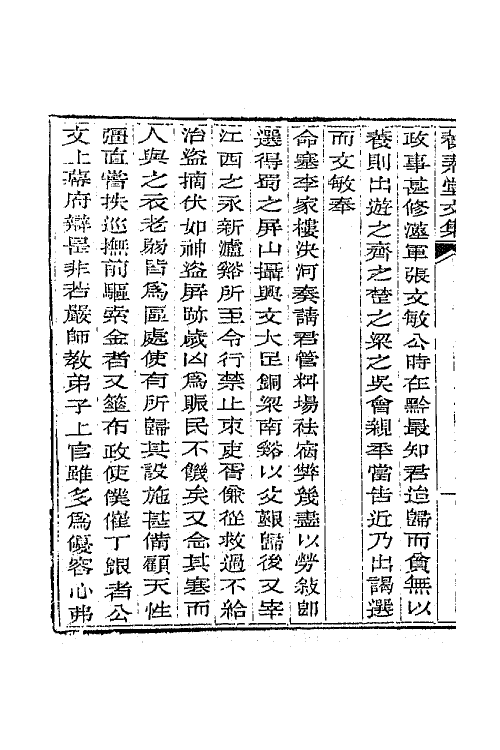 養素堂文集
政事甚修滋軍張文敏公時在黔最知君迨歸而貧無以
養則出遊之齊之楚之梁之吳會親年當告近乃出謁選
而文敏奉
命塞李家樓決河奏請君管料場祛宿弊幾盡以勞敘卽
選得蜀之屏山攝興文大足銅梁南谿以父艱歸後又宰
江西之永新瀘谿所至令行禁止束吏胥傔從救過不給
治盜擿伏如神盜屏跡歲凶為賑民不饑矣又念其塞而
人與之衣老弱皆為區處使有所歸其設施甚備顧天性
彊直嘗抶巡撫前驅索金者又箠布政使僕催丁銀者公
文上幕府辯是非若嚴師教弟子上官雖多為優容心弗